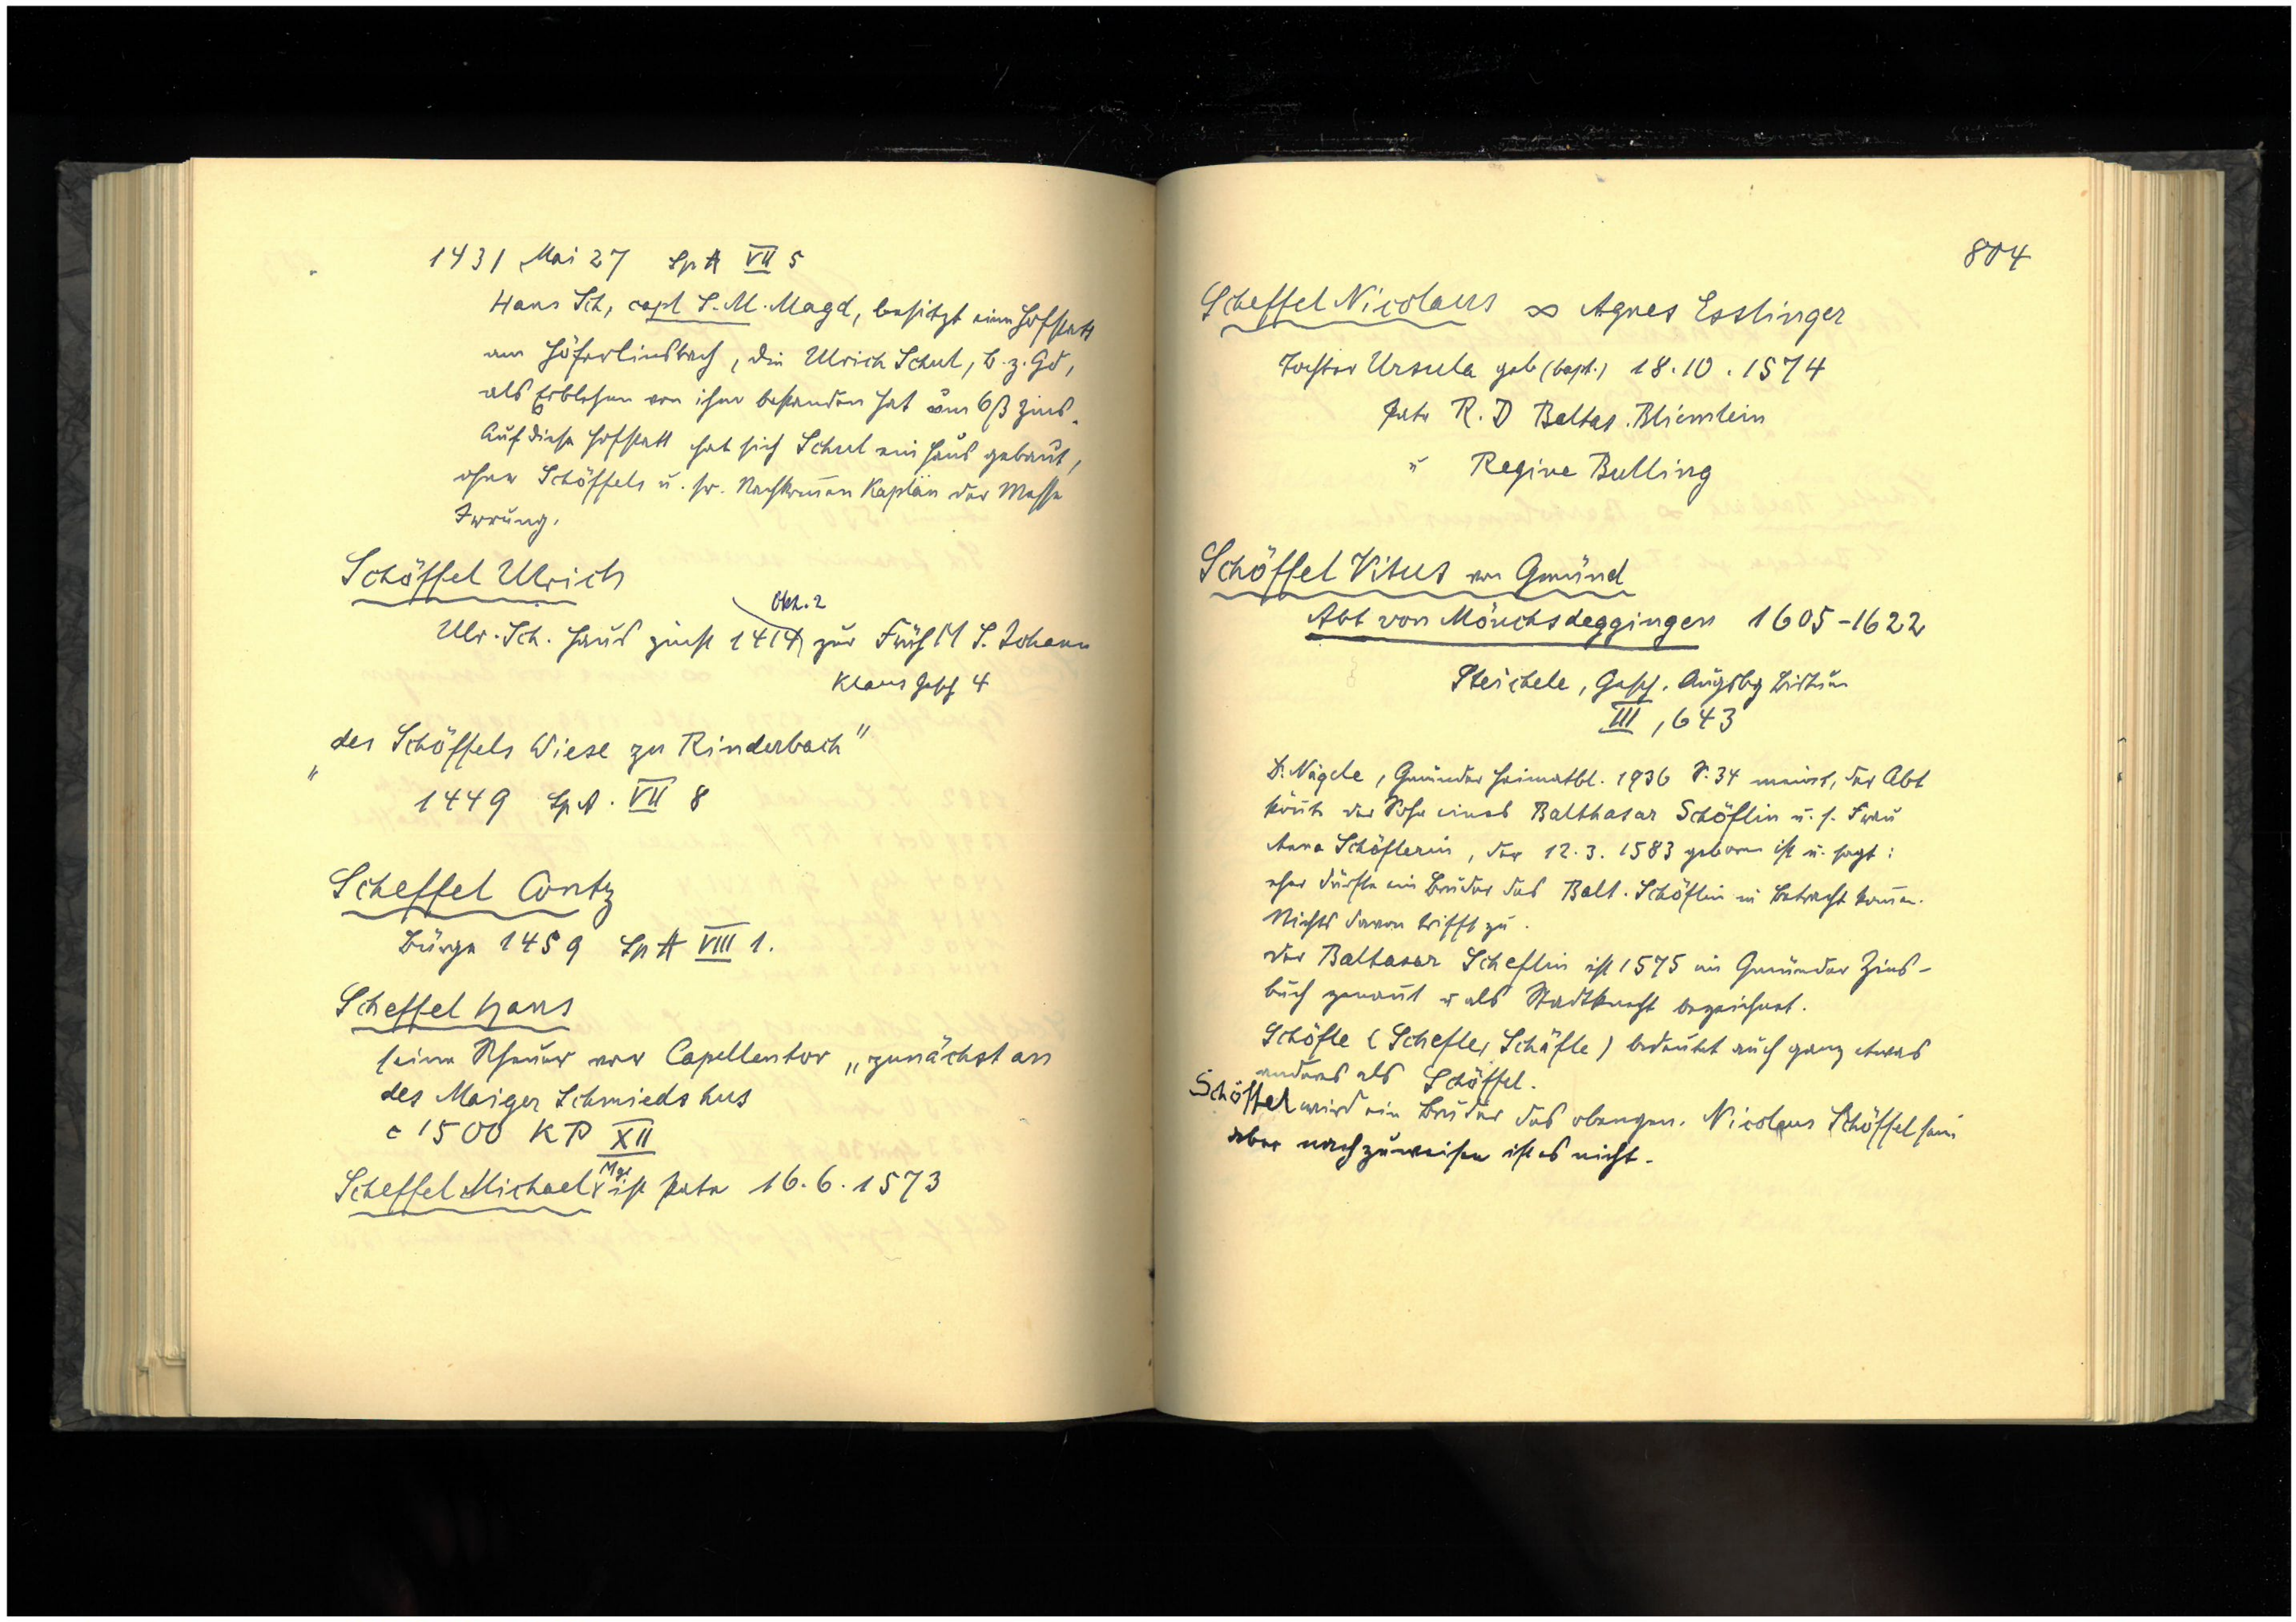 1431 Mai 27 Sp A VII 5
Hans Sch, capl S. M. Magd, besitzt eine Hofstatt
am Höferlinsbach, die Ulrich Schul, b. z. Gd,
als Erblehen von ihm bestanden hat um 6 ß Zins.
Auf diese Hofstatt hat sich Schul ein Haus gebaut,
ohne Schöffels u. sr. Nachkom̄en Kaplän der Messe
Irrung.
Schöffel Ulrich
Okt. 2
Ulr. Sch. Haus zinst 1414 zur Früh M S. Johann
Klaus Gesch 4
"des Schöffels Wiese zu Rinderbach"
1449 Sp A. VII 8
Scheffel Contz
Bürge 1459 Sp A VIII 1.
Scheffel Hans
seine Scheuer vor Capellentor „zunächst an
des Maiger Schmieds hus
c 1500 KP XII
Scheffel Michael Mgr ist Pate 16. 6. 1573
804
Scheffel Nicolaus ∞ Agnes Esslinger
Tochter Ursula geb (bapt.) 18. 10. 1574
Pate R. D Baltas. Bliemlein
u Regine Bulling
Schöffel Vitus von Gmünd
Abt von Mönchsdeggingen 1605-1622
Steichele, Gesch. Augsbg Bistum
III, 643
Dr. Nägele, Gmünder Heimatbl. 1936 S. 34 meint, der Abt
kön̄te der Sohn eines Balthasar Schöflin u. s. Frau
Anna Schöflerin, der 12. 3. 1583 geboren ist u. sagt:
eher dürfte ein Bruder des Balt. Schöflin in Betracht kom̄en.
Nichts davon trifft zu.
Der Baltasar Scheflin ist 1575 im Gmünder Zins-
buch genan̄t u als Stadtknecht bezeichnet.
Schöfle (Schefle, Schäfle) bedeutet auch ganz etwas
anderes als Schöffel.
Schöffel wird ein Bruder des obengen. Nicolaus Schöffel sein
aber nachzuweisen ist es nicht.